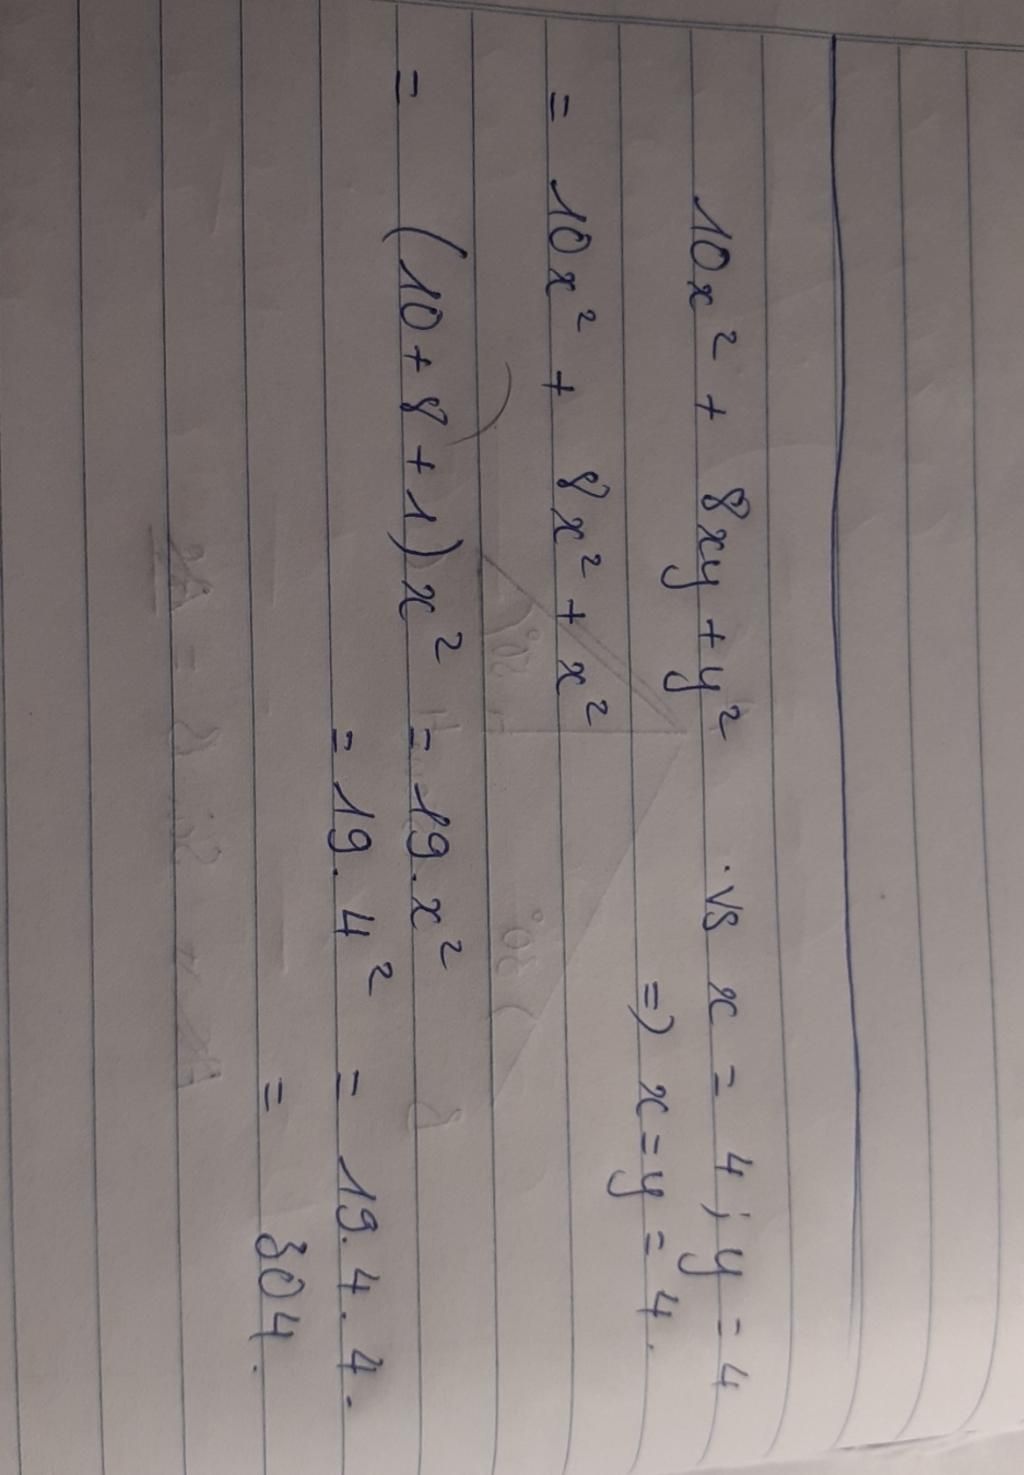 10x² + 8xy + y² . vs x = 4 ; y = 4
=> x = y = 4.
= 10x² + 8x² + x²
= (10 + 8 + 1) x² = 19. x²
= 19. 4² = 19. 4. 4.
= 304.